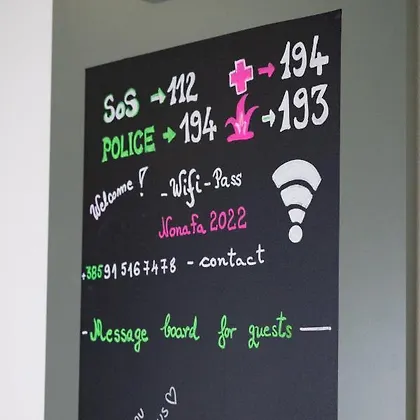 SOS → 112
→ 194
POLICE → 194
→ 193
Welcome!
- Wifi - Pass
Nonafa 2022
+385915167478 - contact
- Message board for guests —